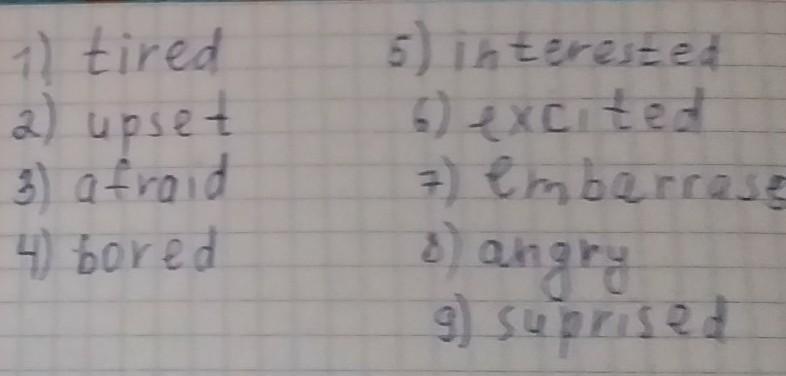 1) tired
2) upset
3) afraid
4) bored
5) interested
6) excited
7) embarrass
8) angry
9) suprised